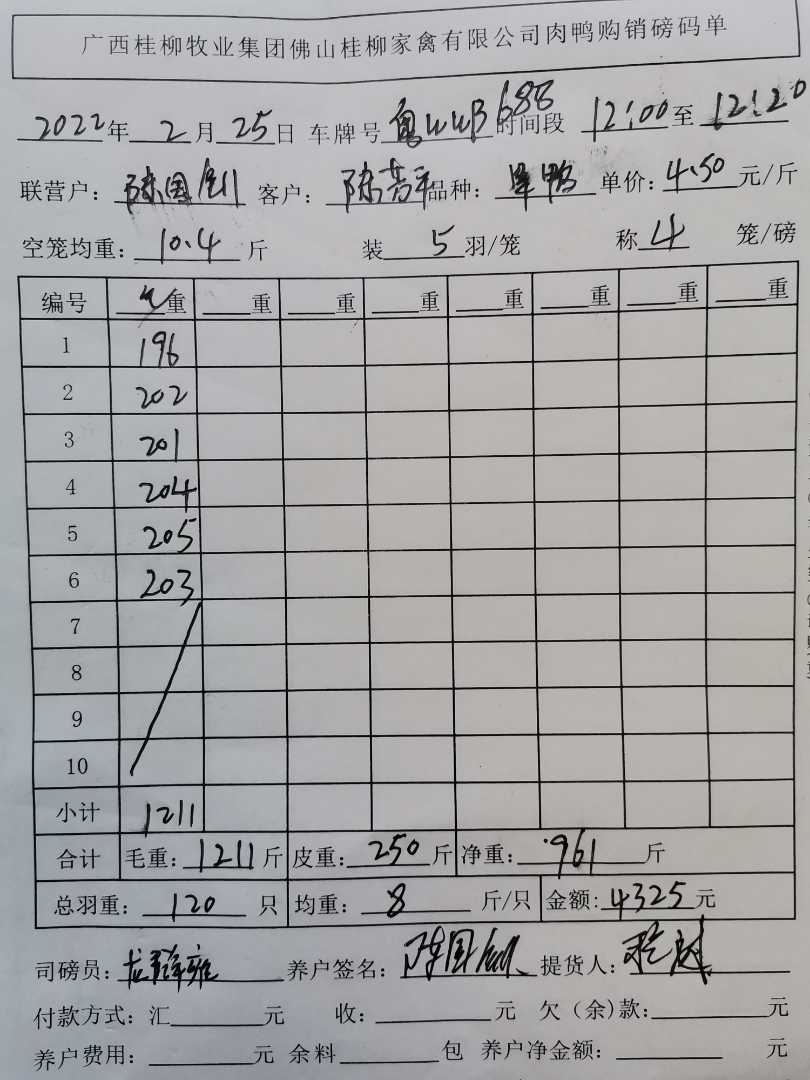 广西桂柳牧业集团佛山桂柳家禽有限公司肉鸭购销磅码单
2022年 2 月 25 日 车牌号 688 时间段 12:00 至 12:20
联营户: 陈国钊 客户: 陈 品种: 鸭 单价: 4.50 元/斤
空笼均重: 10.4 斤 装 5 羽/笼 称 4 笼/磅
编号 毛重 重 重 重 重 重 重 重
1 196
2 202
3 201
4 204
5 205
6 203
7
8
9
10
小计 1211
合计 毛重: 1211 斤 皮重: 250 斤 净重: 961 斤
总羽重: 120 只 均重: 8 斤/只 金额: 4325 元
司磅员: 养户签名: 陈国钊 提货人:
付款方式: 汇 元 收: 元 欠(余)款: 元
养户费用: 元 余料 包 养户净金额: 元